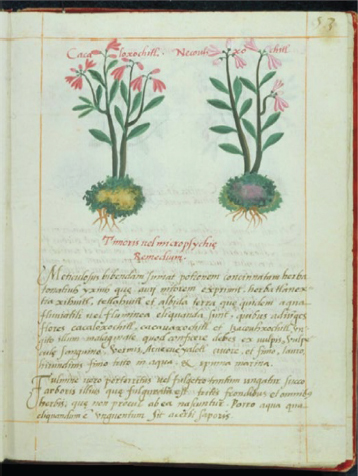 53
Caca loxochitl. Necouh xo chitl
Timoris vel micropsychiæ
Remedium.
Meticulosus bibendum sumat potionem concinnatam herba
tonatiuh yxiuh quæ auri nitorem exprimit, herba tlanex-
tia xihuitl, tetlahuitl et albida terra quæ quidem aqua
fluviatili vel fluminea eliquanda sunt, quibus adijces
flores cacaloxochitl, cacauaxochitl et tzacouhxochitl, un-
gito illum malagmate, quod conficere debes ex vulpis, vulpe-
culæ sanguine, vermis Acuecueyalotl cruore, et fimo, lauro,
hirundinis fimo trito in aqua, et spuma marina.
Fulmine vero perterritus vel fulgetro tinctim ungatur succo
arboris illius quæ fulgurata est tritis frondibus et omnibus
herbis, quæ non procul ab ea nascuntur. Porro aqua qua
eliquandum est unguentum sit acerbi saporis.